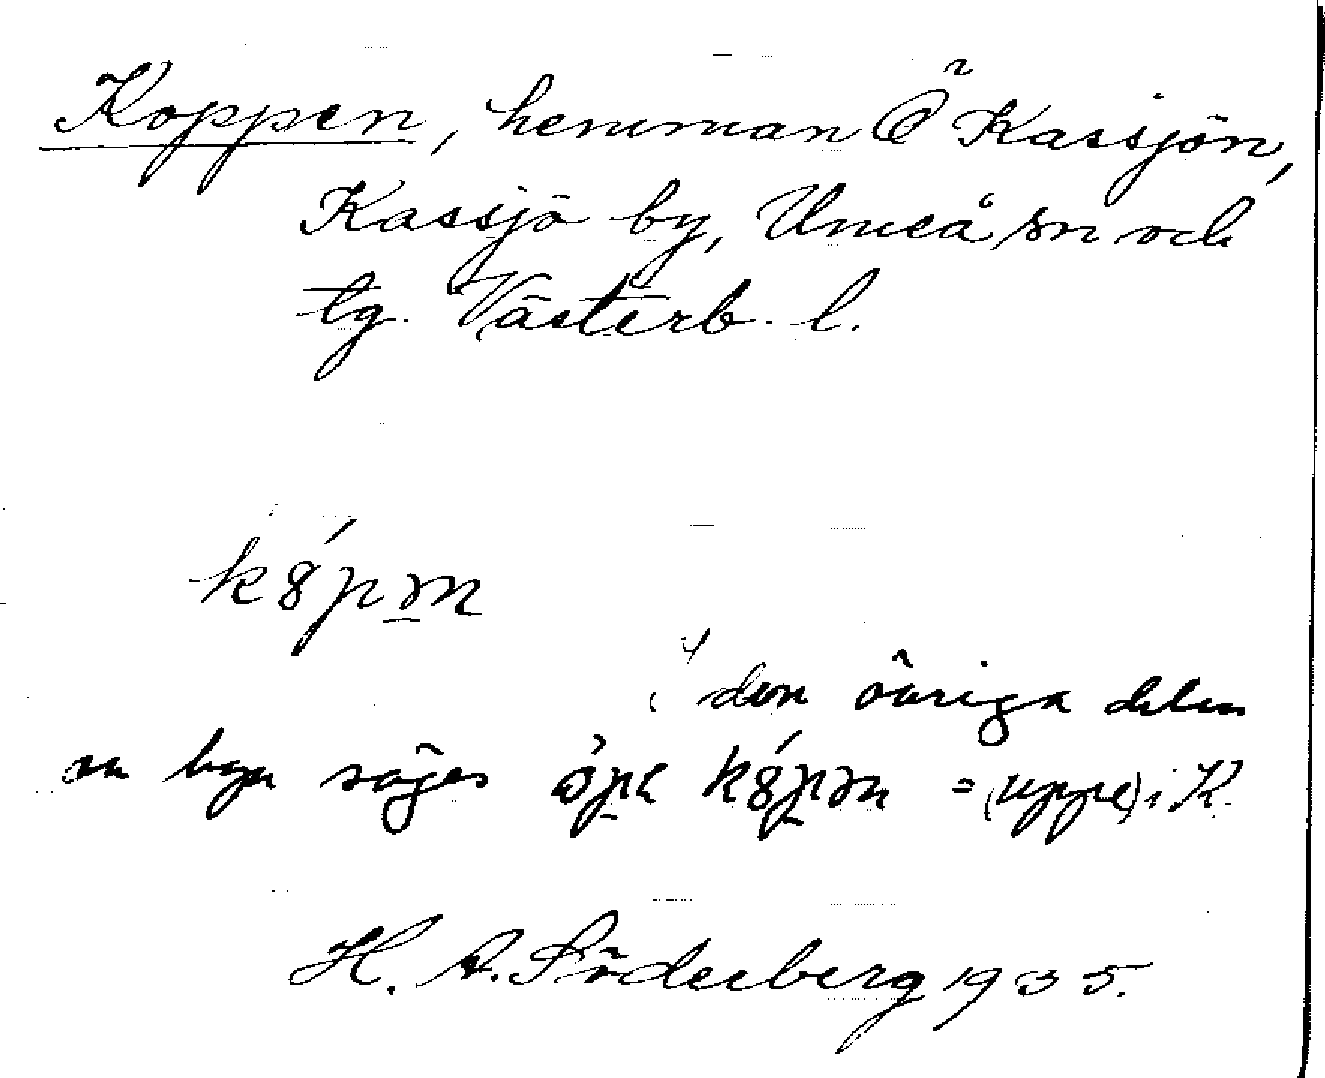 Koppen, hemman Ö Kassjön,
Kassjö by, Umeå sn och
tg. Västerb. l.
kópən
i den övriga delen
av byn säges ópe kópən = (uppe) i K.
H. A. Söderberg 1935.